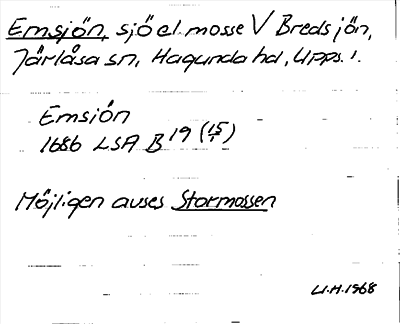 Emsjön, sjö el. mosse V Bredsjön,
Järlåsa sn, Hagunda hd, Upps. l.
Emsiön
1686 LSA B 19 (15/1)
Möjligen avses Stormossen
U.H. 1968